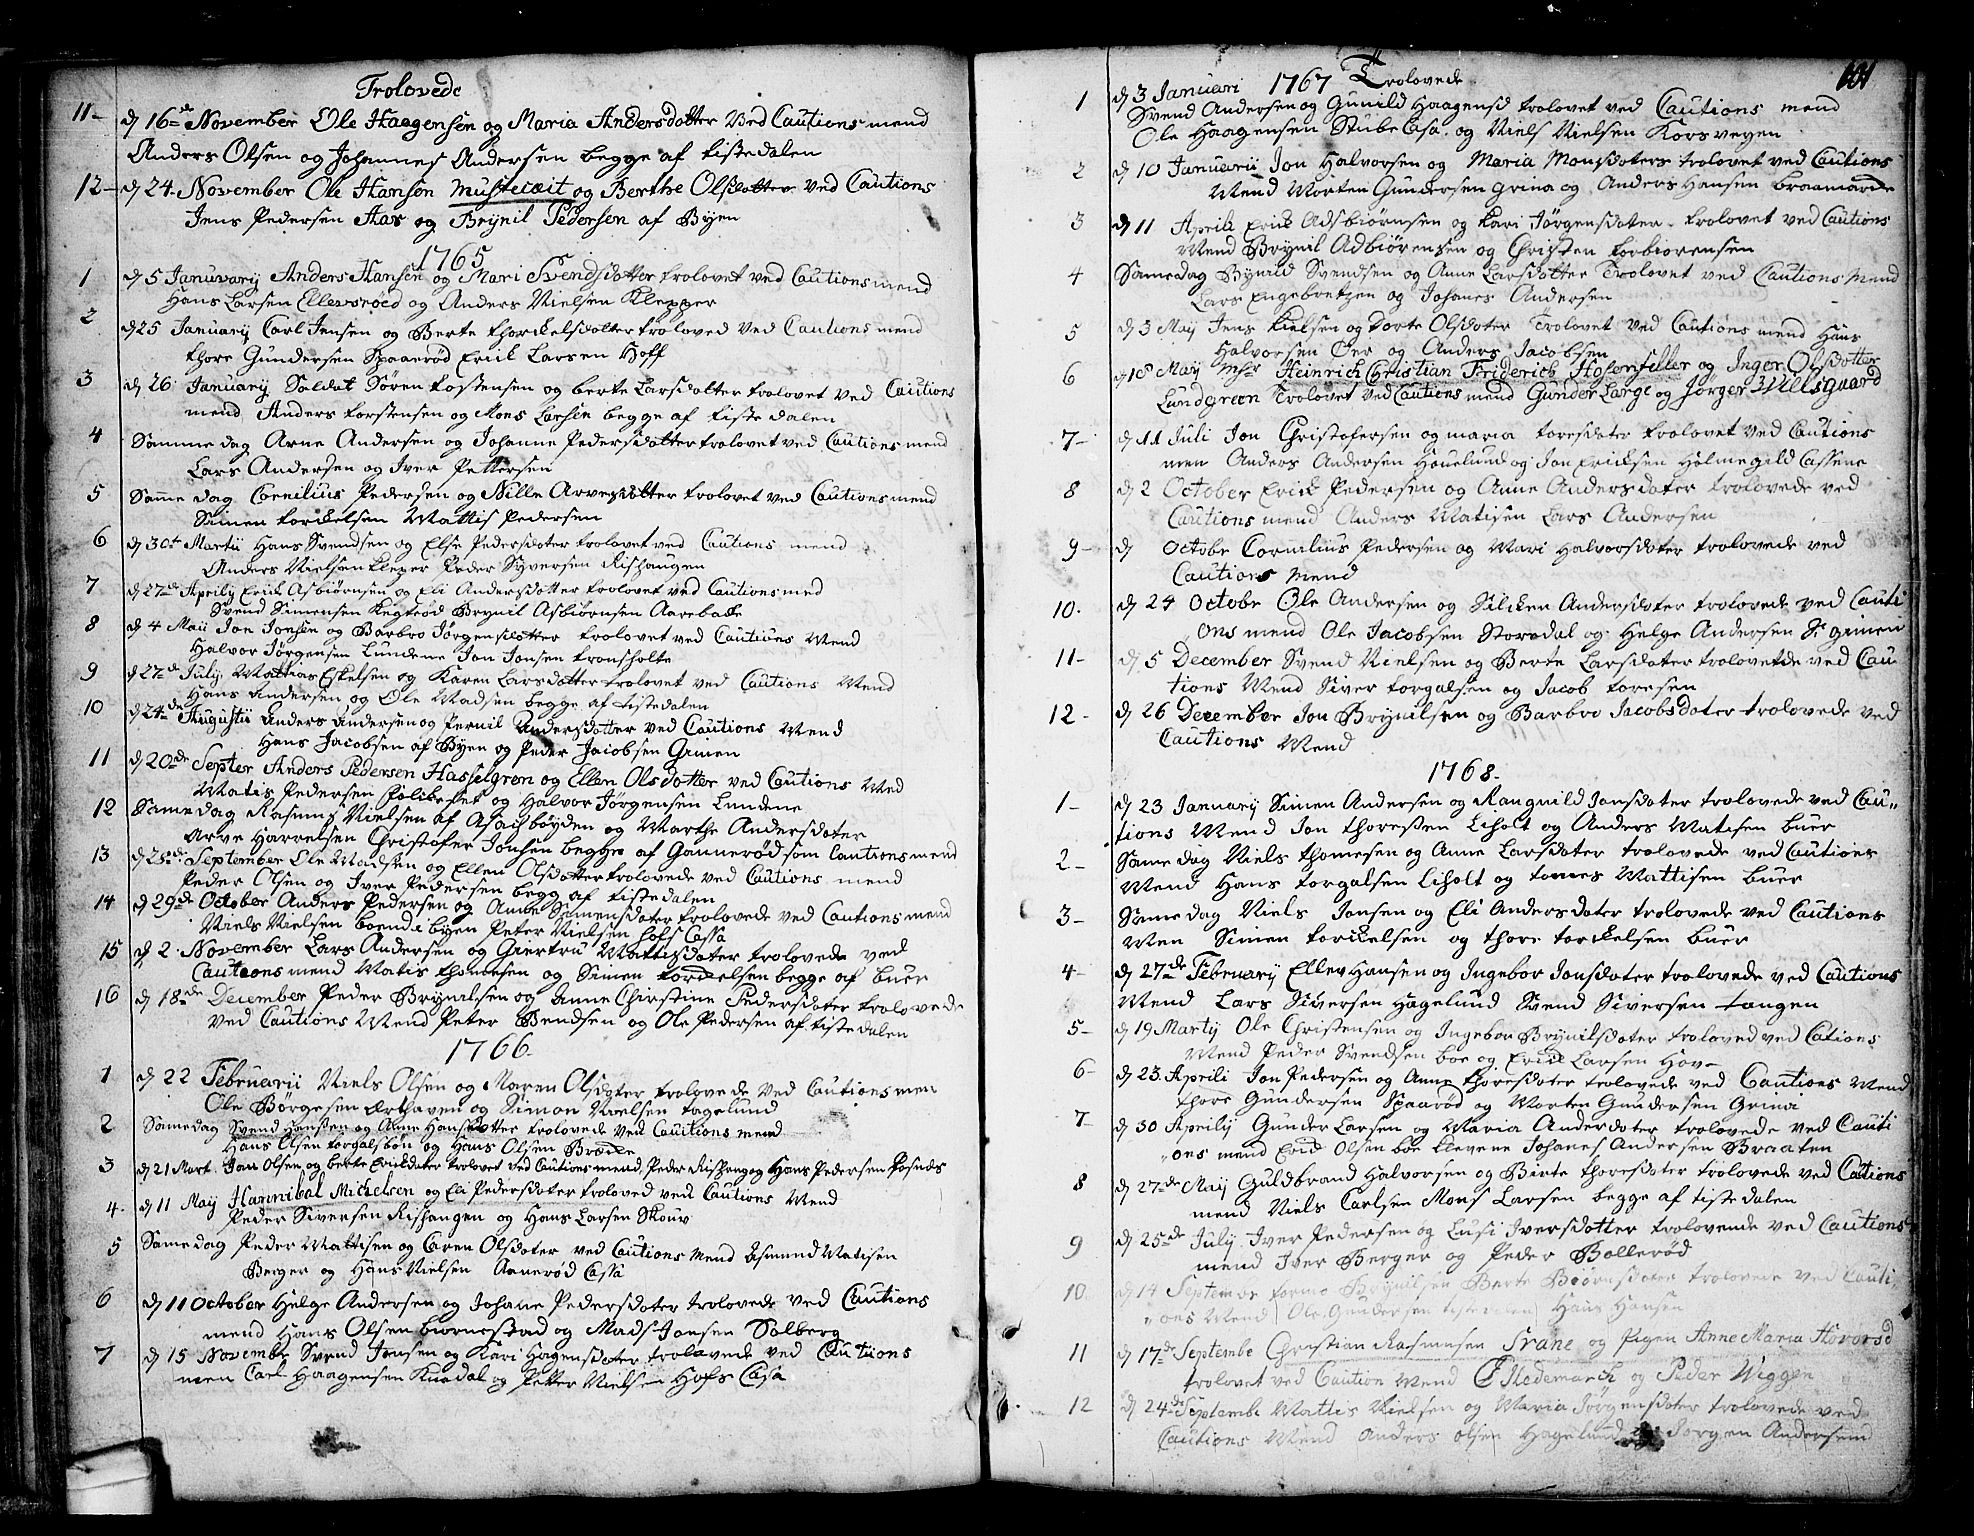 Trolovede
11- d 16de November Ole Haagensen og Maria Andersdotter Ved Cautions mend
Anders Olsen og Johannes Andersen begge af tistedalen
12- d 24. November Ole Hansen og Berthe Olsdotter ved Cautions
Jens Pedersen Aas og Brynil Pedersen af Byen
1765
1 d 5 Januvarij Anders Hansen og Mari Svendsdotter trolovet ved Cautions mend
Hans Larsen Ellevsröed og Anders Nielsen Klepper
2 d 25 Januarij Carl Jensen og Berte thorckelsdotter troloved Ved Cautions mend
thore Gundersen Spaarød Erick Larsen Hoff
3 d 26 Januarij Soldat Sören torstensen og berte Larsdotter trolovet ved Cautions
mend Anders torstensen og Mons Larsen begge af tistedalen
4 Samme dag Arne Andersen og Johanne Pedersdotter trolovet ved Cautions mend
Lars Andersen og Iver Pettersen
5 Samme dag Cornilius Pedersen og Nille Arvesdotter trolovet ved Cautions mend
Simen torckelsen Mattis Pedersen
6 d 30t Martii Hans Svendsen og Else Pedersdoter trolovet ved Cautions mend
Anders Nielsen Kleper Peder Syversen Rishaugen
7 d 27de Aprily Erick Asbiörnsen og Eli Andersdotter trolovet ved Cautions med
Svend Simensen Brynil Asbiörnsen Aarebacke
8 d 4 Maii Jon Jonsen og Barbro Jörgensdotter trolovet ved Cautions Mend
Halvor Jörgensen Lundene Jon Jonsen
9 d 27de July Mattias Eskelsen og Karen Larsdotter trolovet ved Cautions Mend
Hans Andersen og Ole Madsen begge af tistedalen
10 d 24de Augustii Anders Andersen og Pernil Andersdotter ved Cautions Mend
Hans Jacobsen af Byen og Peder Jacobsen Grinen
11 d 20de Septer Anders Pedersen Hasselgren og Ellen Olsdotter ved Cautions Med
Matis Pedersen og Halvor Jörgensen Lundene
12 Same dag Rasmus Nielsen af og Marthe Andersdoter
Arve Harrelsen Christofer Jonsen begge af Gannerød som Cautions mend
13 September Ole Madsen og Ellen Olsdotter trolovede ved Cautions mend
Peder Olsen og Iver Pedersen begg af tistedalen
14 d 29de October Anders Pedersen og Anne Simensdoter trolovede ved Cautions mend
Niels Nielsen boende i byen Peter Nielsen Hofs Cassa
15 d 2. November Lars Andersen og Giertru Mattisdoter trolovede ved
Cautions mend Matis thomesen og Simen torckelsen begge af Buer
16 d 18de December Peder Brynilsen og Anne Chirstine Pedersdoter trolovede
ved Cautions Mend Peter Bendsen og Ole Pedersen af tistedalen
1766.
1 d 22 Februarii Niels Olsen og Maren Olsdoter trolovede Ved Cautions men
Ole Börgesen og Simon Nielsen tagelund
2 Samedag Svend Hansen og Anne Hansdotter trolovede ved Cautions mend
Hans Olsen torgalsbön og Hans Olsen Brecke
3 d 21 Mart. Jon Olsen og berte Ericksdater trolovet ved Cautions mend, Peder Rishaug og Hans Pedersen
4. d 11 Maij Hannibal Michelsen og Eli Pedersdoter troloved ved Cautions Mend
Peder Siversen Rishaugen og Hans Larsen Skouv
5 Samedag Peder Mattisen og Caren Olsdoter ved Cautions Mend Asmund Matisen
Berger og Hans Nielsen Cassa
6 d 11 October Helge Andersen og Johane Pedersdoter trolovede ved Cautions
mend Hans Olsen biornestad og Mads Jonsen Solberg
7 d 15 November Svend Jonsen og Kari Hagensdoter trolovede ved Cautions
men Carl Haagensen Knadal og Petter Nielsen Hofs Casa
1767 Trolovede 101
1 d 3 Januari
Svend Andersen og Gunild Haagensd trolovet ved Cautions mend
Ole Haagensen Stube Casa. og Niels Nielsen Korsvegen
2 d 10 Januarii Jon Halvorsen og Maria Monsdoters trolovet ved Cautions
Mend Morten Gundersen Grina og Anders Hansen
3 d 11 Aprili Erick Adsbiörnsen og Kari Jörgensdater. trolovet ved Cautions
Mend Brynil Adbiörensen og Christen torbiorensen
4 Samedag Bynild Svendsen og Anne Larsdotter Trolovet ved Cautions Mend
Lars Engebretzen og Johanes Andersen
5 d 3 Maij Jens Kielsen og Dorte Olsdoter Trolovet ved Cautions mend Hans
Halvorsen Öer og Anders Jacobsen
6 d 18 May Msr Heinrich Christian Friderich Hosenfeller og Inger Olsdotter
Lundgreen Trolovet ved Cautions mend Gunder Large og Jörger Wiellsgaard
7- d 11 Juli Jon Christofersen og Maria toresdoter trolovet ved Cautions
men Anders Andersen Houelund og Jon Ericksen Holmegild Cassene
8 d 2 October Erick Pedersen og Anne Andersdoter trolovede ved
Cautions mend Anders Matisen Lars Andersen
9- d Octobe Cornilius Pedersen og Mari Halvorsdoter trolovede ved
Cautions mend
10. d 24 Octobe Ole Andersen og Silcken Andersdoter trolovede ved Cauti
ons mend Ole Jacobsen Storedal og Helge Andersen St. Grinen
11- d 5 December Svend Nielsen og Berte Larsdoter trolovetde ved Cau
tions Mend Siver torgalsen og Jacob toresen
12- d 26 December Jon Brynilsen og Barbro Jacobsdoter trolovede ved
Cautions Mend
1768.
1- d 23 Januarij Simen Andersen og Rangnild Jonsdoter trolovede ved Cau
tions Mend Jon thoressen Liholt og Anders Matisen Buer
2- Same dag Niels thomesen og Anne Larsdoter trolovede ved Cautions
Mend Hans torgalsen Liholt og tomes Mattisen Buer
3- Same dag Niels Jonsen og Eli Andersdoter trolovede ved Cautions
Men Simen torckelsen og thore torckelsen Buer
4- d 27de Februarij Ellev Hansen og Ingebor Jonsdoter trolovede ved Cautions
Mend Lars Siversen Hagelund Svend Siversen tangen
5- d 19 Martij Ole Christensen og Ingebor Brynilsdoter troloved ved Cations
Mend Peder Svendsen boe og Erick Larsen Hov
6- d 23. Aprili Jon Pedersen og Anne thoresdoter trolovede ved Cautions Mend
thore Gundersen Spaarød og Morten Gundersen Grini
7- d 30 Aprilij Gunder Larsen og Maria Anderdoter trolovede ved Cauti
ons mend Erick Olsen boe Klevene Johanes Andersen Braaten
8 d 27de Maij Guldbrand Halvorsen og Birte thoresdoter trolovede ved Cautions
mend Niels Carlsen Mons Larsen begge af tistedalen
9 d 25de July Iver Pedersen og Lusi Iversdotter trolovende ved Cautions
mend Iver Berger og Peder Bollerød
10. d 14 Septembe tormo Brynilsen Berte Biörnsdoter trolovede ved Cauti
ons Mend Ole Gundersen tistedalen Hans Hansen
11 d 17de Septembe Christian Rasmusen Trane og Pigen Anne Maria Hovorsd
trolovet ved Caution Mend C Hedemarck og Peder Wiggen
12 d 24de Septembe Mattis Nielsen og Maria Jörgensdoter trolovede ved
Cautions Mend Anders Olsen Hagelund og Jörgen Andersend